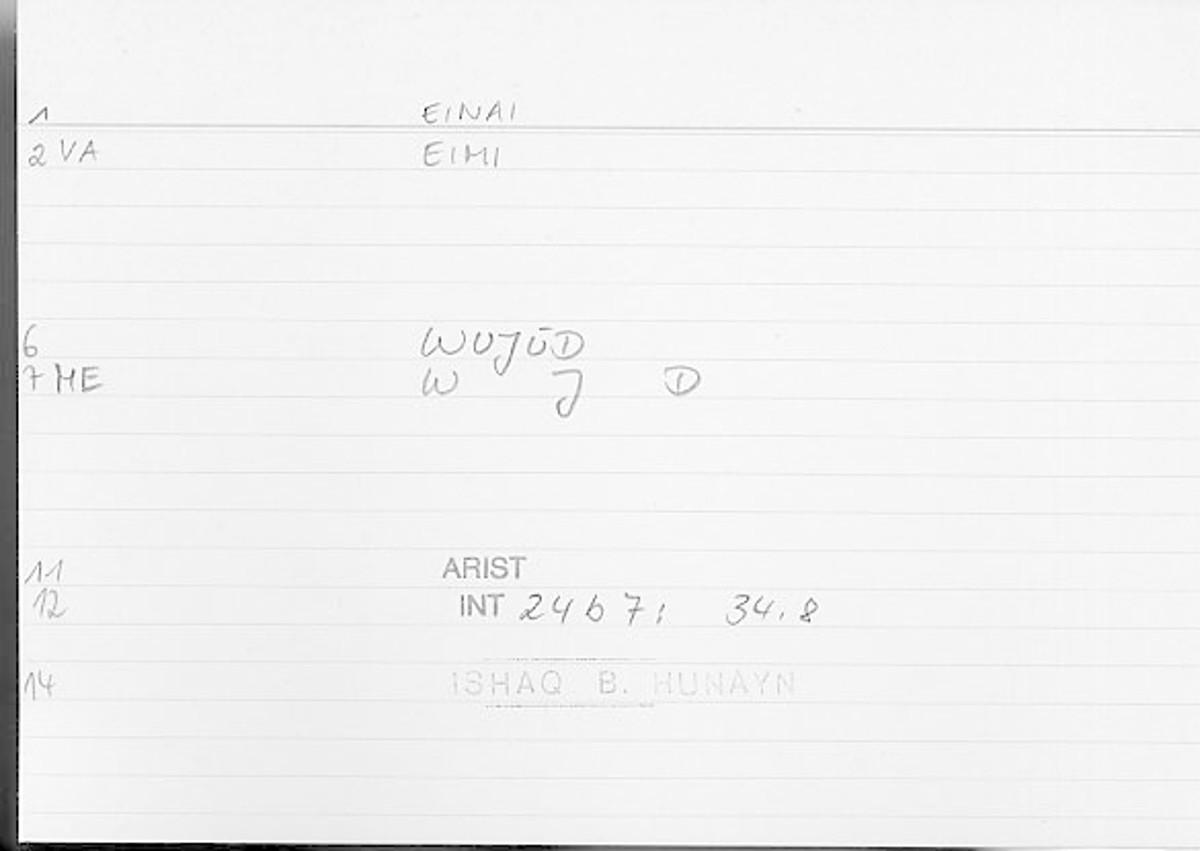 1 EINAI
2 VA EIMI
6 WUJŪD
7 ME W J D
11 ARIST
12 INT 24b7; 34.8
14 ISHAQ B. HUNAYN